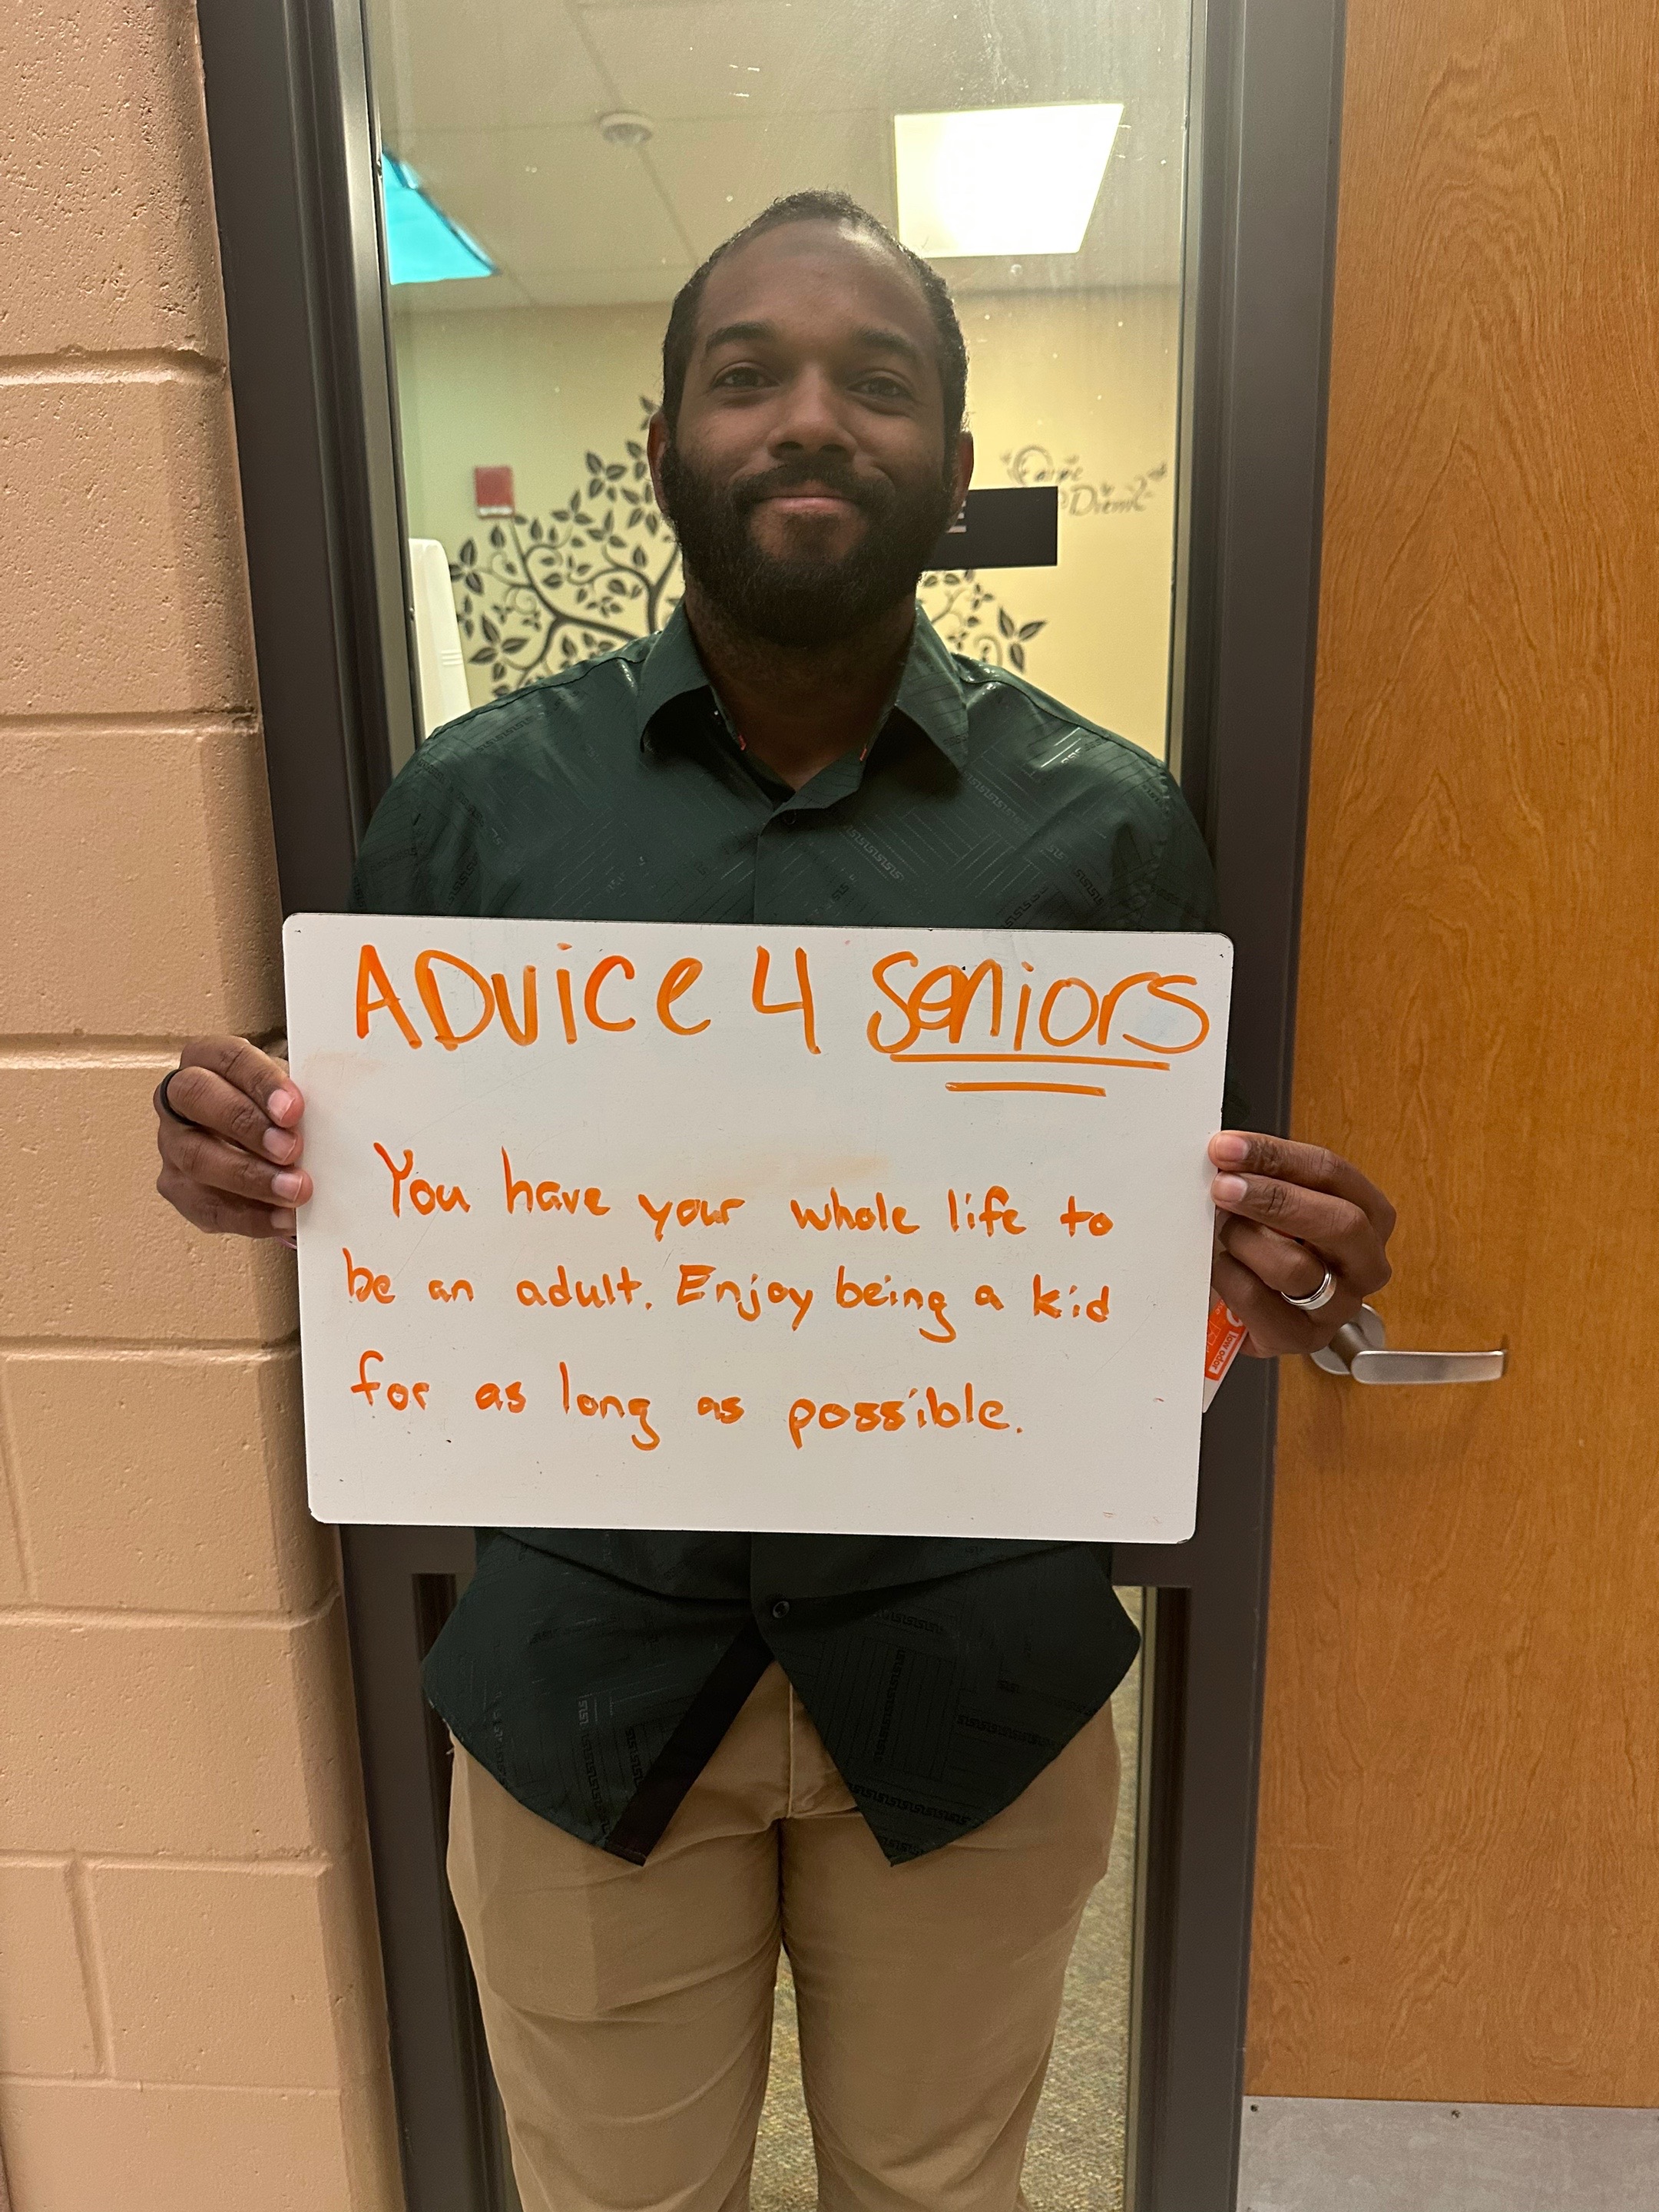 Carpe
Diem
E
ADvice 4 Seniors
You have your whole life to
be an adult. Enjoy being a kid
for as long as possible.
low odor